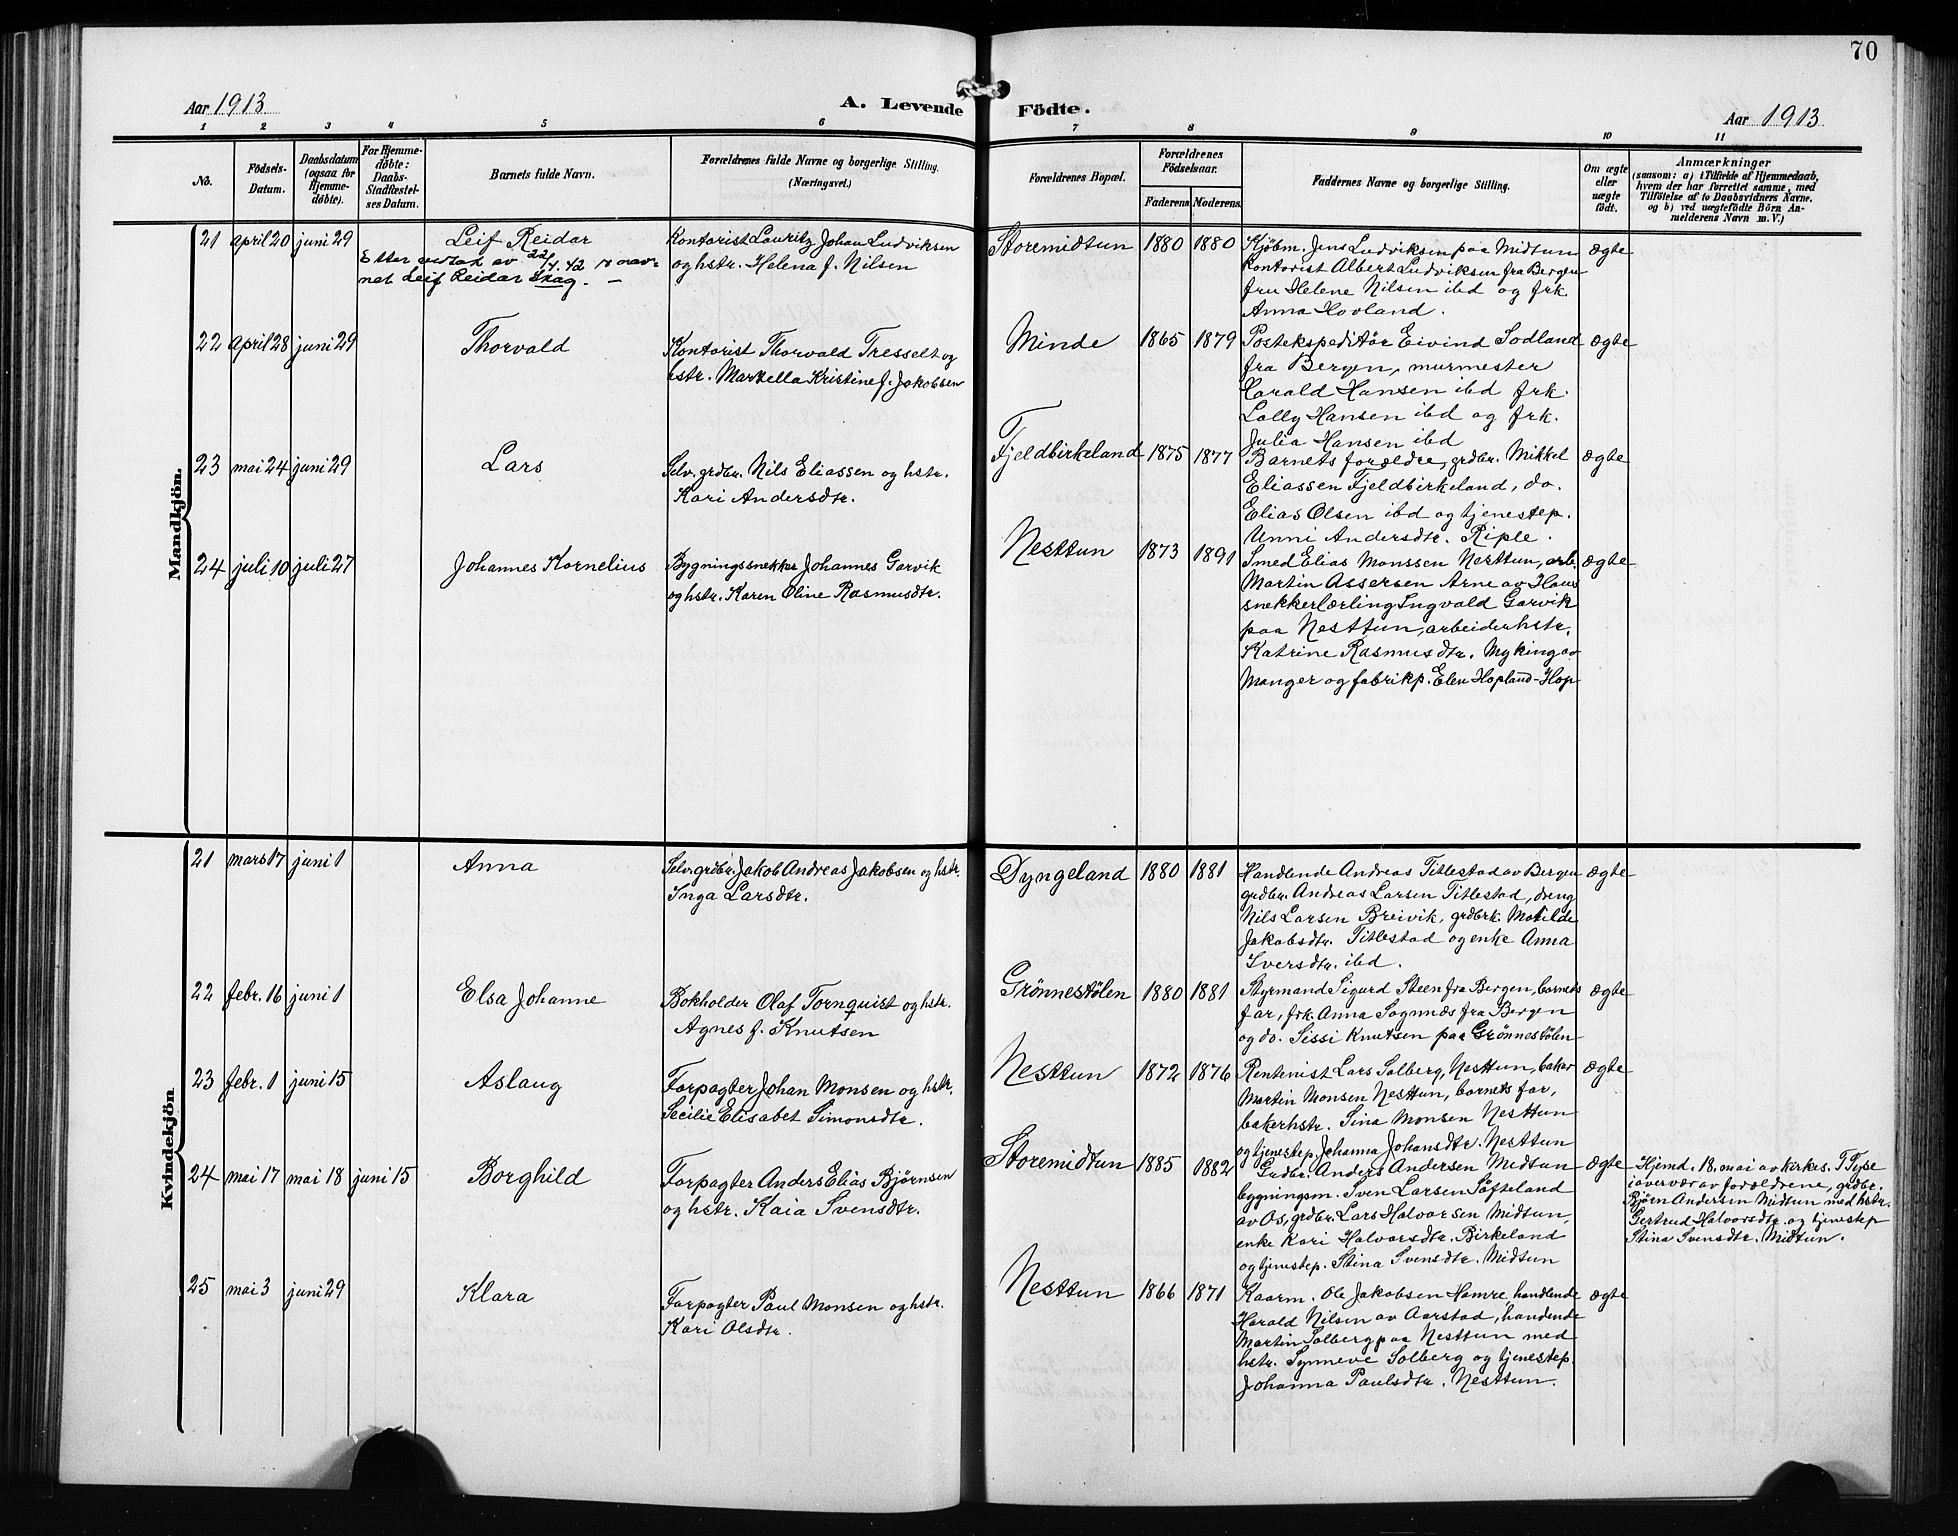 70
Aar 1913
A. Levende Födte.
Aar 1913
1 2 3 4 5 6 7 8 9 10 11
No.
Födsels-
Datum.
Daabsdatum
(ogsaa for
Hjemme-
döbte).
For Hjemme-
döbte:
Daabs-
Stadfæstel-
ses Datum.
Barnets fulde Navn.
Forældrenes fulde Navne og borgerlige Stilling.
(Næringsvei.)
Forældrenes Bopæl.
Forældrenes
Födselsaar.
Faderens Moderens
Faddernes Navne og borgerlige Stilling.
Om ægte
eller
uægte
födt.
Anmærkninger
(saasom: a) i Tilfælde af Hjemmedaab,
hvem der har forrettet samme, med
Tilföielse af to Daabsvidners Navne.
og b) ved uægtefödte Börn An-
melderens Navn m. V.)
Mandkjön.
21 april 20 juni 29
Leif Reidar
Etter vedtak av 22/4.42
net Leif Reidar Skag. —
Kontorist Lauritz Johan Ludviksen
og hstr. Helena f. Nilsen
Storemidtun 1880 1880
Kjøbm. Jens Ludviksen paa Midtun
Kontorist Albert Ludviksen fra Bergen
fru Helene Nilsen ibd og frk.
Anna Hovland.
ægte
22 april 28 juni 29
Thorvald
Kontorist Thorvald Tresselt og
hstr. Martella Kristine f. Jakobsen
Minde 1865 1879
Postekspeditör Eivind Sodland
fra Bergen, murmester
Harald Hansen ibd frk.
Lolly Hansen ibd og frk.
Julia Hansen ibd
ægte
23 mai 24 juni 29
Lars
Selv. grdbr. Nils Eliassen og hstr.
Kari Andersdtr.
Fjeldbirkeland 1875 1877
Barnets forældre, grdbr. Mikkel
Eliassen Fjeldbirkeland, do.
Elias Olsen ibd og tjenestep.
Unni Andersdtr. Riple.
ægte
24 juli 10 juli 27
Johannes Kornelius
Bygningssnekker Johannes Garvik
og hstr. Karen Oline Rasmusdtr.
Nesttun 1873 1891
Smed Elias Monssen Nesttun, arb.
Martin Assersen Arne av Haus
snekkerlærling Ingvald Garvik
paa Nesttun, arbeiderhstr.
Katrine Rasmusdtr. Myking av
Manger og fabrikp. Elen Hopland-Hop
ægte
Kvindekjön
21 mars 17 juni 1
Anna
Selv. grdbr. Jakob Andreas Jakobsen og hstr.
Inga Larsdtr.
Dyngeland 1880 1881
Handlende Andreas Titlestad av Bergen
grdbr. Andreas Larsen Titlestad, dreng
Nils Larsen Breivik, grdbrk. Matilde
Jakobsdtr. Titlestad og enke Anna
Iversdtr. ibd.
ægte
22 febr. 16 juni 1
Elsa Johanne
Bokholder Olaf Tornquist og hstr.
Agnes f. Knutsen
Grönnestölen 1880 1881
Styrmand Sigurd Steen fra Bergen, barnets
far, frk. Anna Sognnæs fra Bergen
og do. Sissi Knutsen paa Grönnestölen
ægte
23 febr. 1 juni 15
Aslaug
Forpagter Johan Monsen og hstr.
Secilie Elisabet Simonsdtr.
Nesttun 1872 1876
Rentenist Lars Solberg, Nesttun, baker
Martin Monsen Nesttun, barnets far,
bakerhstr. Sina Monsen Nesttun
og tjenestep. Johanna Johansdtr. Nesttun
ægte
24 mai 17 mai 18 juni 15
Borghild
Forpagter Anders Elias Bjørnsen
og hstr. Kaia Svensdtr.
Storemidtun 1885 1882
Gudbr. Anders Andersen Midtun
bygningsm. Sven Larsen Söfteland
av Os, grdbr. Lars Halvorsen Midtun,
enke Kari Halvorsdtr. Birkeland
og tjenestep. Stina Svensdtr. Midtun
ægte
Hjemd. 18. mai av kirkes. T Tyse
i overvær av forældrene, grdbr.
Bjørn Andersen Midtun med hstr.
Gertrud Halvorsdtr. og tjenestep
Stina Svensdtr. Midtun.
25 mai 3 juni 29
Klara
Forpagter Paul Monsen og hstr.
Kari Olsdtr.
Nesttun 1866 1871
Kaarm. Ole Jakobsen Hamre, handlende
Harald Nilsen av Aarstad, handende
Martin Solberg paa Nesttun med
hstr. Synneve Solberg og tjenestep.
Johanna Paulsdtr. Nesttun.
ægte